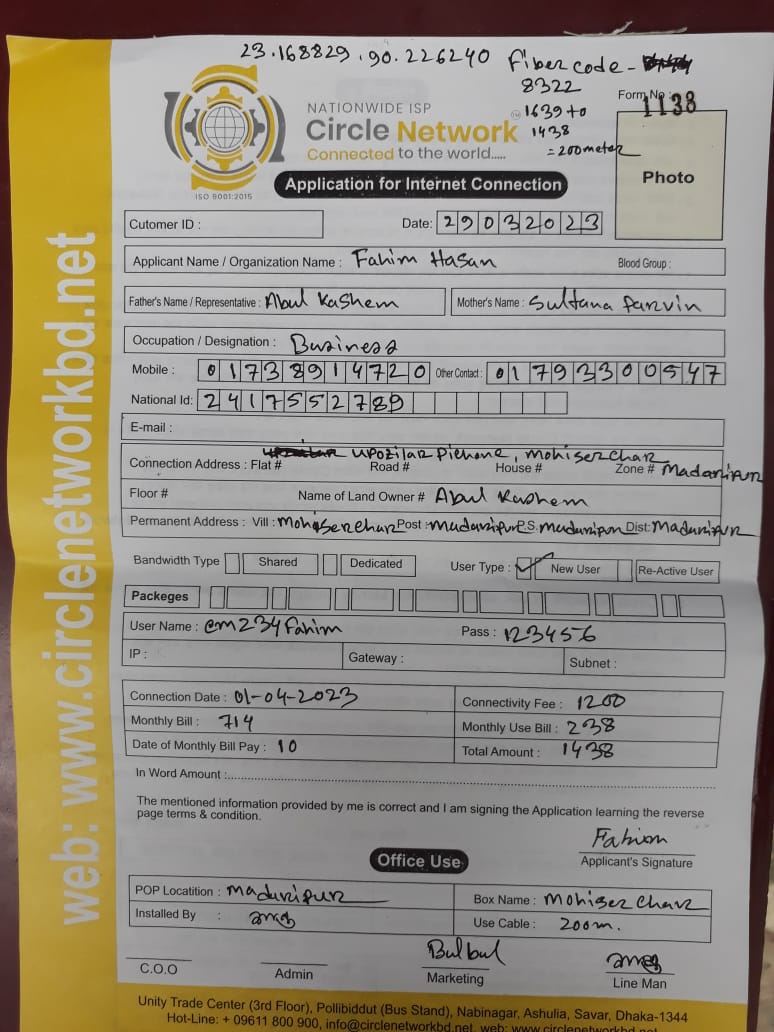 23.168829.90.226240 Fiber code -
8322
Form No : 1138
1639 to
1438
= 200 meter
NATIONWIDE ISP
Circle Network
Connected to the world.....
ISO 9001:2015
Application for Internet Connection
Photo
Cutomer ID :
Date: 29032023
Applicant Name / Organization Name : Fahim Hasan Blood Group :
Father's Name / Representative : Abul Kashem Mother's Name : Sultana Parvin
Occupation / Designation : Business
Mobile : 01738914720 Other Contact : 01793300547
National Id: 2417552789
E-mail :
Upozilar Pichone, Mohiserchar
Connection Address : Flat # Road # House # Zone # Madaripur
Floor # Name of Land Owner # Abul Kashem
Permanent Address : Vill : Mohiserchar Post : Madaripur P.S. Madaripur Dist: Madaripur
Bandwidth Type Shared Dedicated User Type : New User Re-Active User
Packeges
User Name : cm234fahim Pass : 123456
IP : Gateway : Subnet :
Connection Date : 01-04-2023 Connectivity Fee : 1200
Monthly Bill : 714 Monthly Use Bill : 238
Date of Monthly Bill Pay : 10 Total Amount : 1438
In Word Amount :
The mentioned information provided by me is correct and I am signing the Application learning the reverse
page terms & condition.
Fahim
Applicant's Signature
Office Use
POP Locatition : Madaripur Box Name : Mohiser Char
Installed By : Use Cable : 200m.
Bulbul
C.O.O Admin Marketing Line Man
Unity Trade Center (3rd Floor), Pollibiddut (Bus Stand), Nabinagar, Ashulia, Savar, Dhaka-1344
Hot-Line: + 09611 800 900, info@circlenetworkbd.net, web: www.circlenetworkbd.net
web: www.circlenetworkbd.net